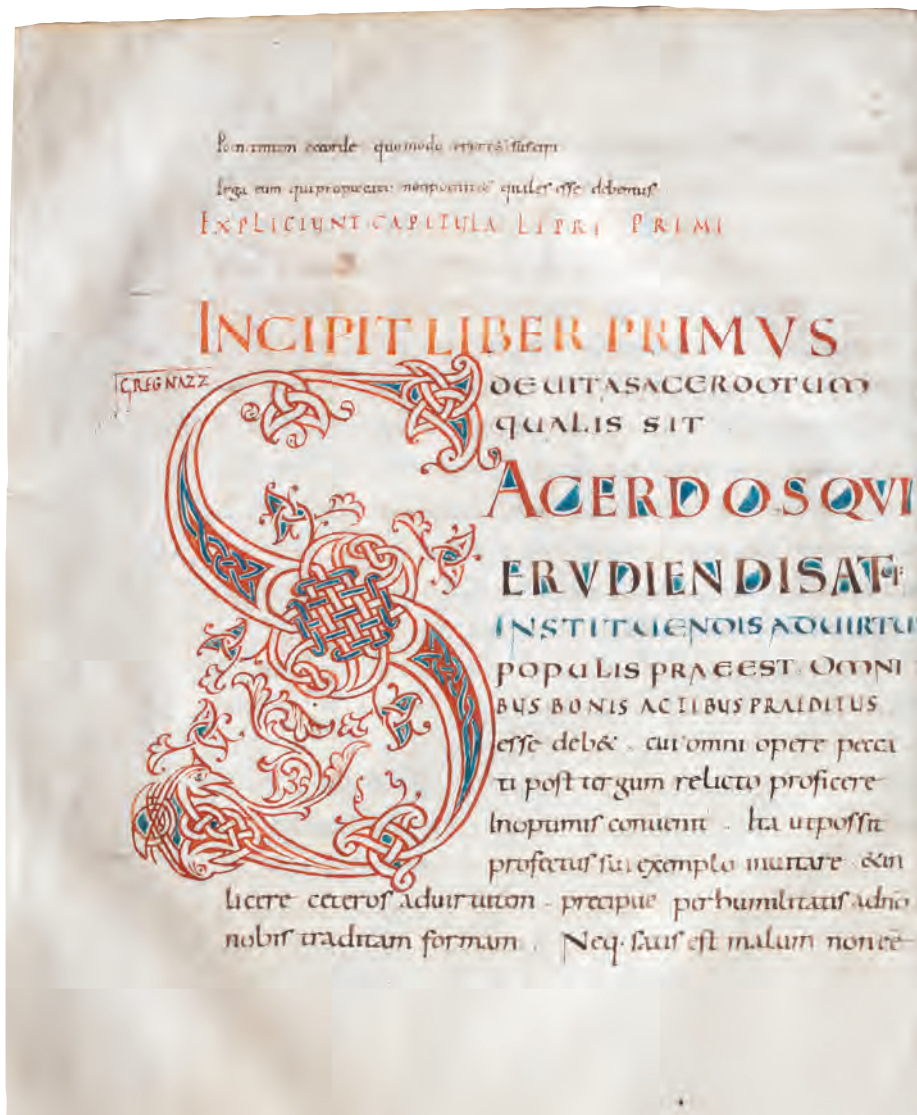 EXPLICIUNT CAPITULA LIBRI PRIMI
INCIPIT LIBER PRIMVS
GREG NAZZ
DE UITA SACERDOTUM
QUALIS SIT
SACERDOS QVI
ERVDIENDIS ATQ:
INSTITUENDIS AD UIRTU
POPULIS PRAEEST. OMNI
BUS BONIS ACTIBUS PRAEDITUS
esse deb&. cui omni opere pecca
ti post tergum relicto proficere
In optimis conuenit. Ita ut possit
profectus sui exemplo inuitare &in
licere ceteros ad uirtutem. precipue per humilitatis adno
nobis traditam formam. Neq. satis est malum non eē